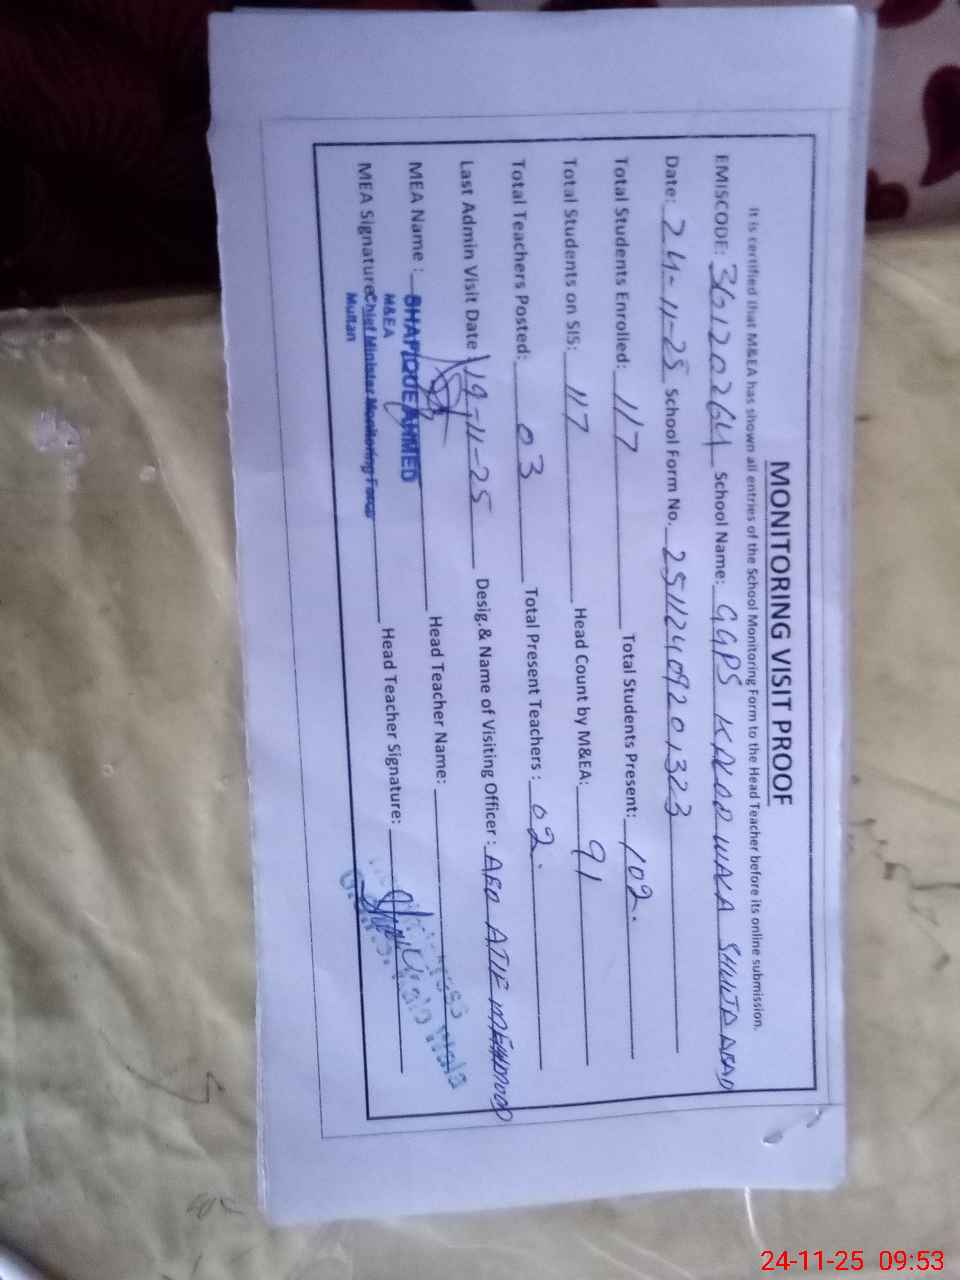 MONITORING VISIT PROOF
It is certified that M&EA has shown all entries of the School Monitoring Form to the Head Teacher before its online submission.
EMISCODE: 36120264 School Name: GGPS WALA SHUJABAD
Date: 24-11-25 School Form No. 25112409201323
Total Students Enrolled: 117 Total Students Present: 102.
Total Students on SIS: 117 Head Count by M&EA: 91
Total Teachers Posted: 03 Total Present Teachers : 02.
Last Admin Visit Date : 19-11-25 Desig.& Name of Visiting Officer : AEO ATIF MEHMOOD
MEA Name : SHAFIQUE AHMED Head Teacher Name:
M&EA
MEA Signature: Chief Minister Monitoring Force Head Teacher Signature:
Multan
24-11-25 09:53